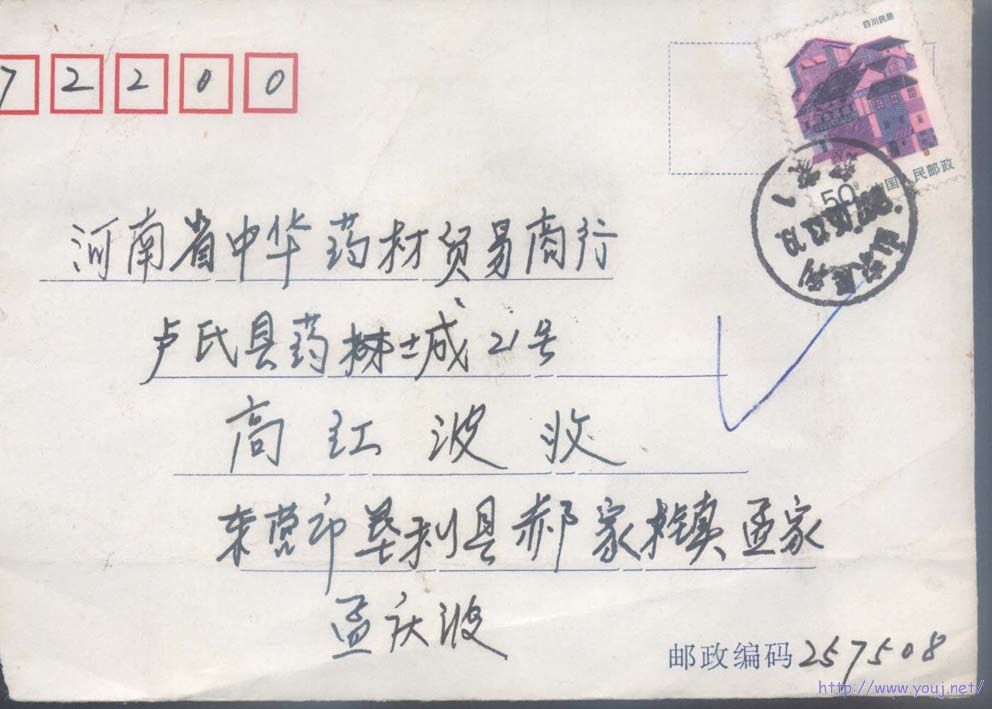 四川民居
72200
50分 中国人民邮政
河南省中华药材贸易商行
卢氏县药材城21号
高红波收
东营市垦利县郝家镇孟家
孟庆波
邮政编码257508
http://www.youj.net/